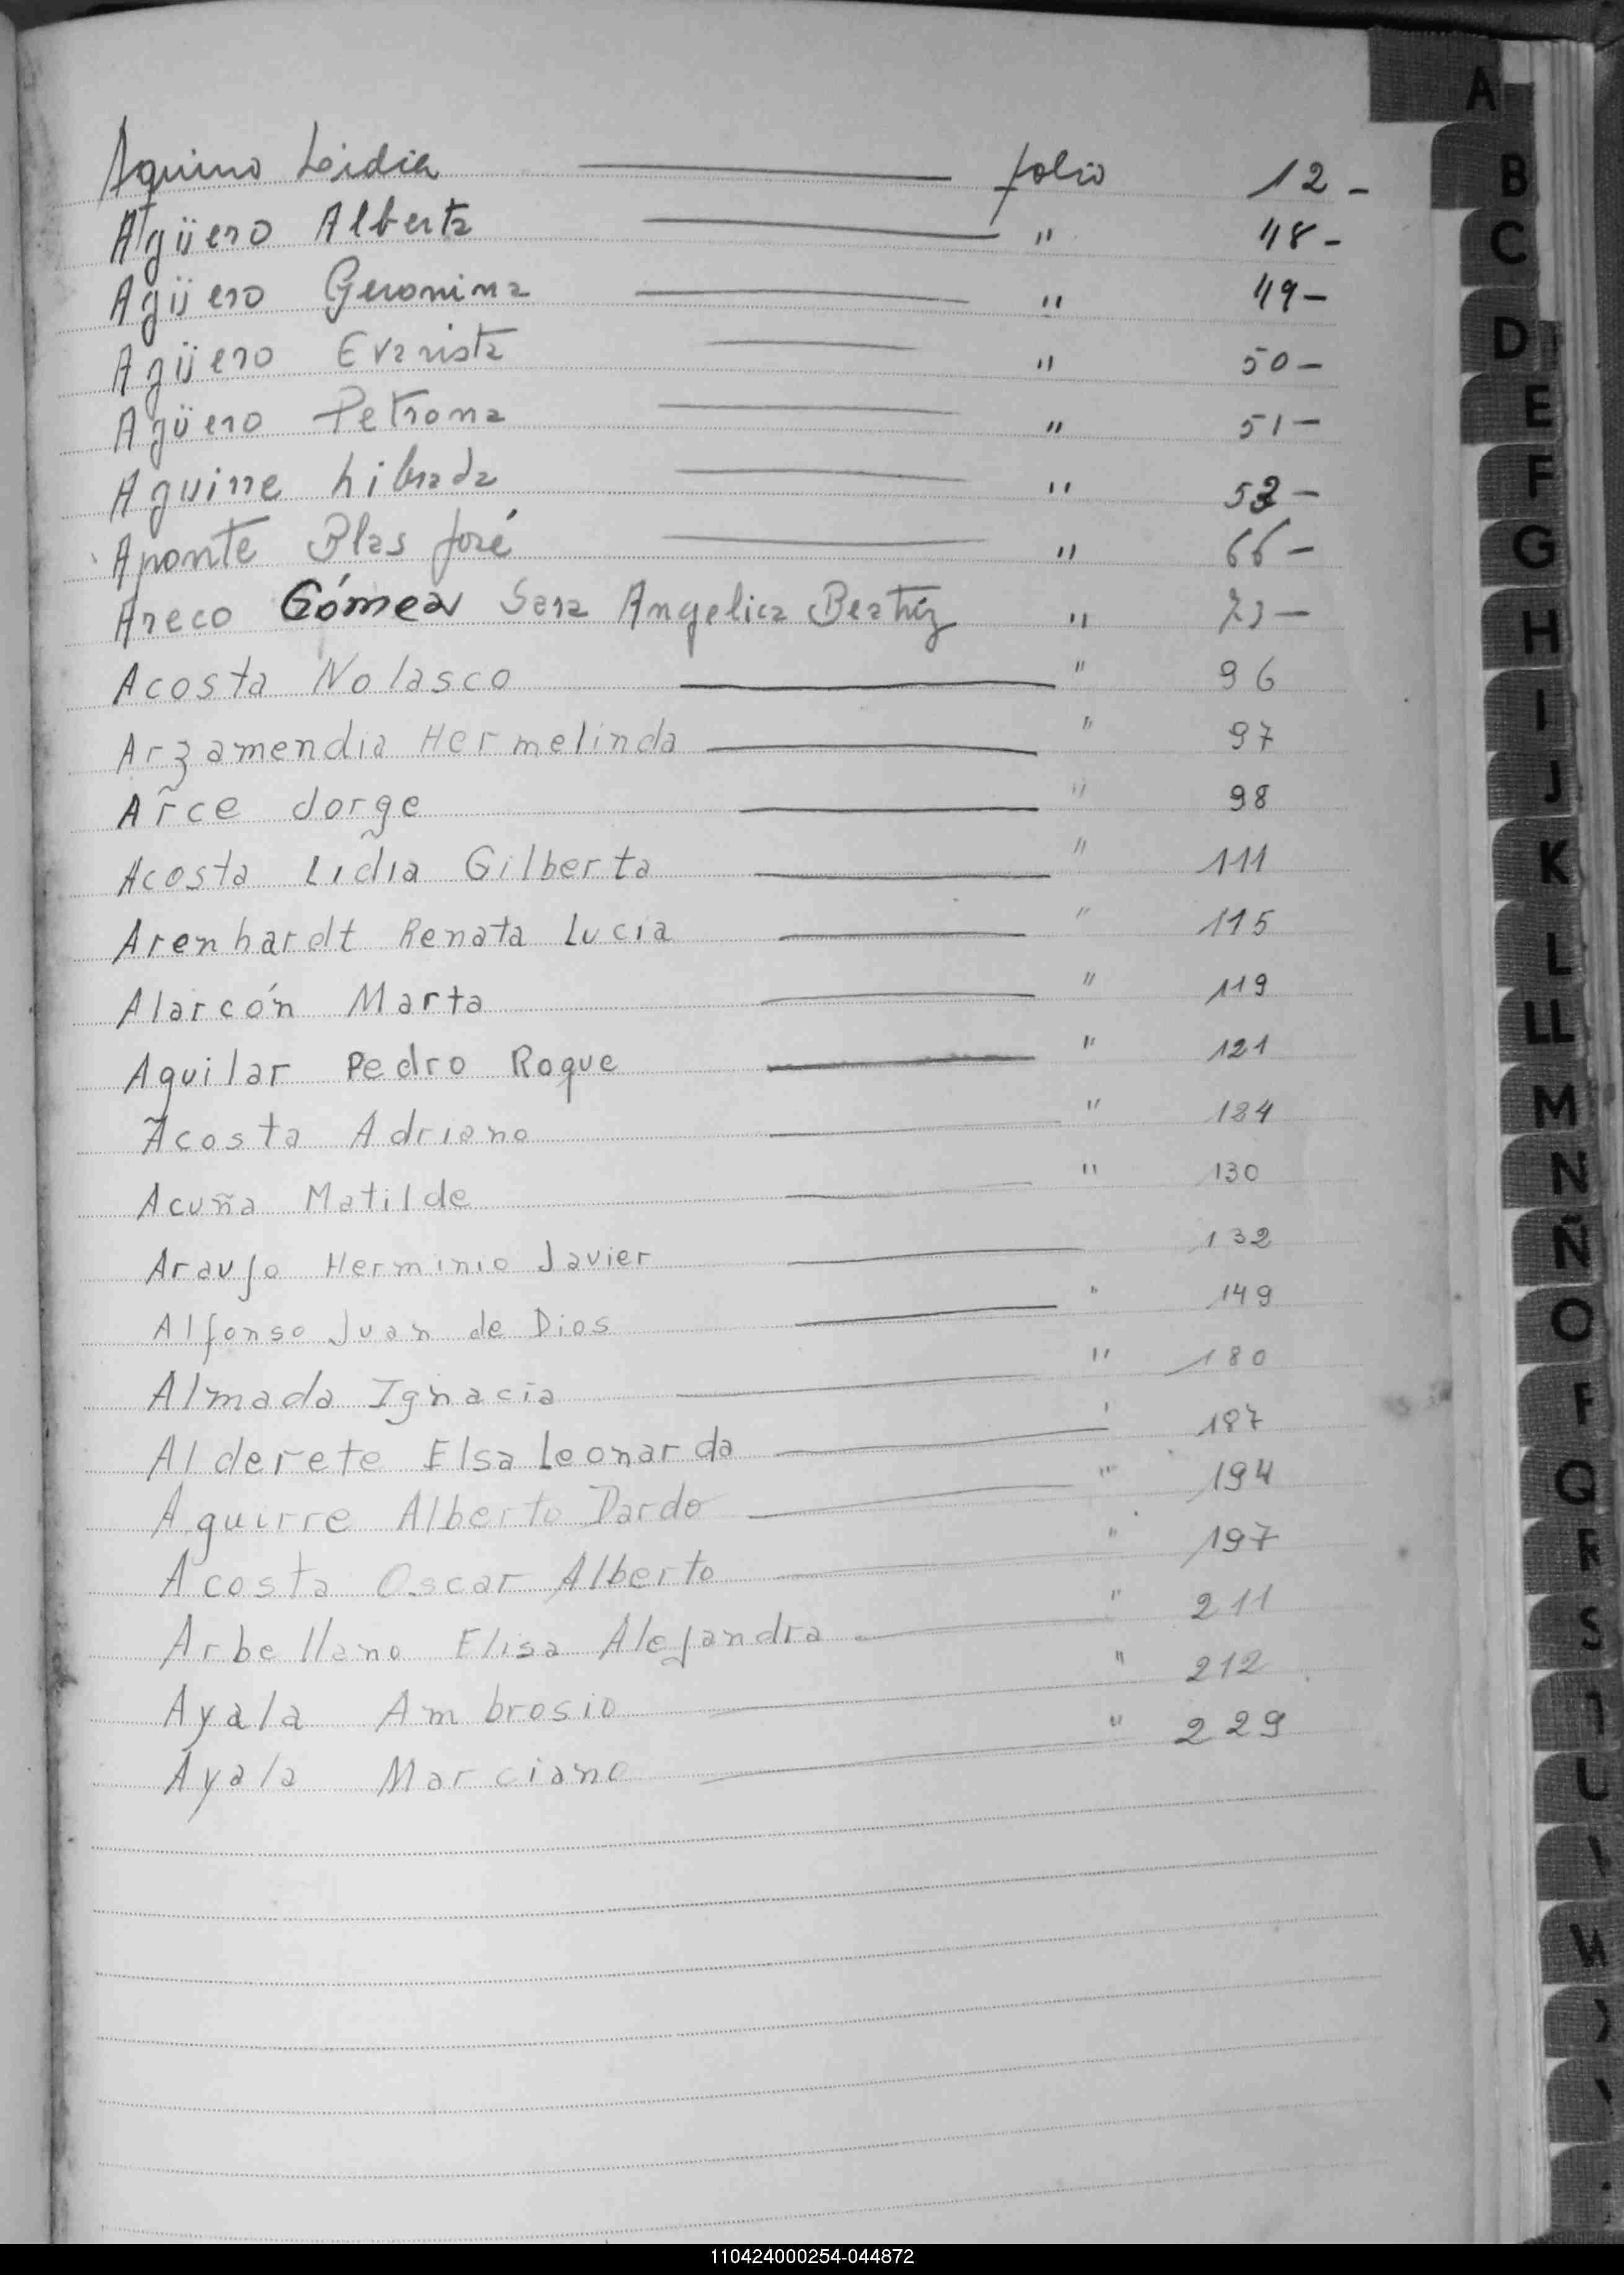 Aquino Lidia folio 12 -
Agüero Alberta " 48 -
Agüero Geronima " 49 -
Agüero Evarista " 50 -
Agüero Petrona " 51 -
Aguirre Librada " 52 -
Aponte Blas José " 66 -
Areco Gómez Sara Angelica Beatríz " 73 -
Acosta Nolasco " 96
Arzamendia Hermelinda " 97
Arce Jorge " 98
Acosta Lidia Gilberta " 111
Arenhardt Renata Lucia " 115
Alarcón Marta " 119
Aguilar Pedro Roque " 121
Acosta Adriano " 124
Acuña Matilde " 130
Araujo Herminio Javier 132
Alfonso Juan de Dios " 149
Almada Ignacia " 180
Alderete Elsa Leonarda " 187
Aguirre Alberto Dardo " 194
Acosta Oscar Alberto " 197
Arbellano Elisa Alejandra " 211
Ayala Ambrosio " 212
Ayala Marciano " 229
A
B
C
D
E
F
G
H
I
J
K
L
LL
M
N
Ñ
O
P
Q
R
S
T
U
110424000254-044872